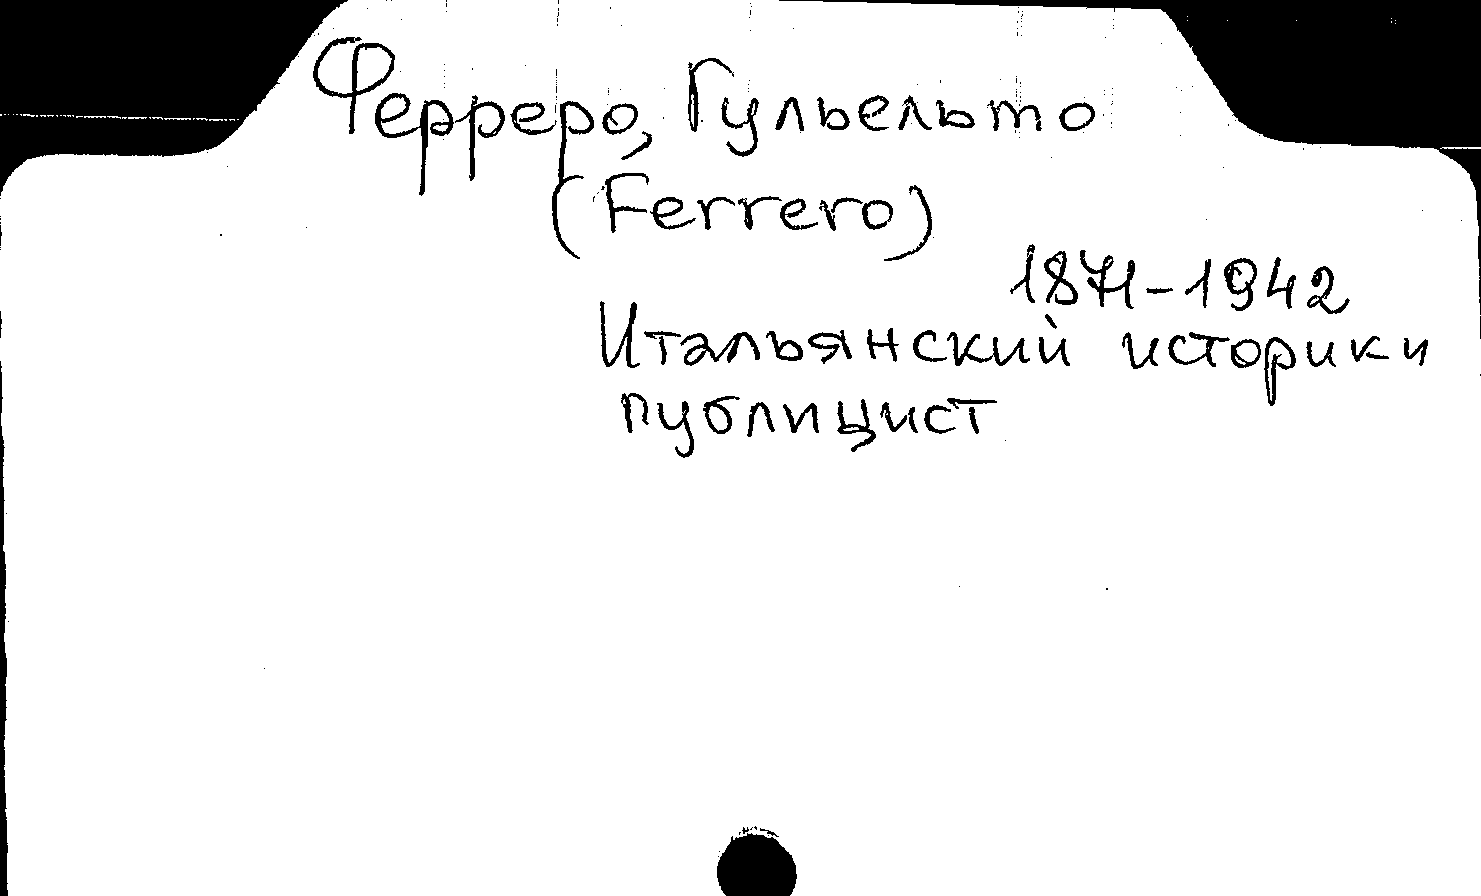 Ферреро, Гульельто
(Ferrero)
1871-1942
Итальянский историк и
публицист